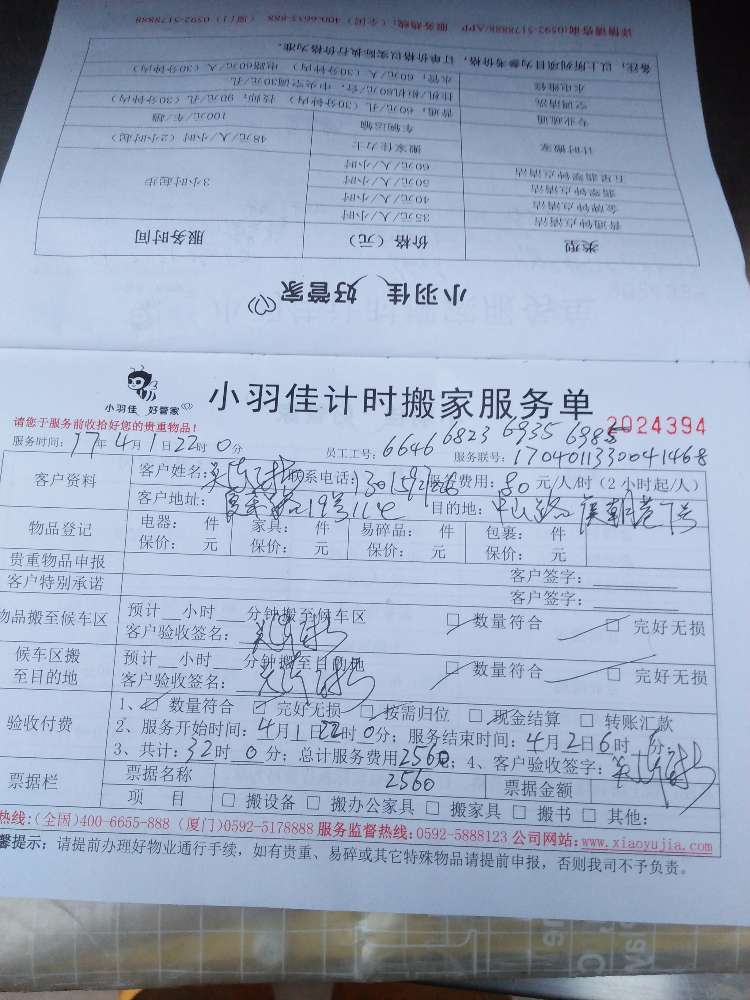 详情请告询0592-5178888/APP 服务热线：(全国) 400-6655-888 (厦门) 0592-5178888
备注：以上所列项目为参考价格，订单价格以实际执行价格为准。
水电维修 水管：60元/人（30分钟内） 电路60元/人（30分钟内）
空调清洗 挂机/柜机80元/台，中央空调30元/孔
专业疏通 普通：60元/孔（30分钟内） 技师：90元/孔（30分钟内）
计时搬家 车辆运输 100元/趟
搬家佳力士 48元/人/小时（2小时起）
五星翡翠钟点清洁 60元/人/小时 3小时起步
翡翠钟点清洁 50元/人/小时
金牌钟点清洁 40元/人/小时
普通钟点清洁 35元/人/小时
类型 价格（元） 服务时间
小羽佳 好管家
小羽佳 好管家
小羽佳计时搬家服务单
2024394
请您于服务前收拾好您的贵重物品！
服务时间：17年4月1日22时0分 员工工号：6646 6823 6935 6985 服务联号：17040113300041468
客户资料 客户姓名： 联系电话： 服务费用：80元/人/时（2小时起/人）
客户地址： 19号 目的地：中山路 7号
物品登记 电器： 件 家具： 件 易碎品： 件 包裹： 件
保价： 元 保价： 元 保价： 元 保价： 元
贵重物品申报 客户签字：
客户特别承诺 客户签字：
物品搬至候车区 预计 小时 分钟搬至候车区 □ 数量符合 □ 完好无损
客户验收签名：
候车区搬至目的地 预计 小时 分钟搬至目的地 □ 数量符合 □ 完好无损
客户验收签名：
验收付费 1、□ 数量符合 □ 完好无损 □ 按需归位 □ 现金结算 □ 转账汇款
2、服务开始时间：4月1日22时0分；服务结束时间：4月2日6时 分；
3、共计：32时0分；总计服务费用2560元；4、客户验收签字：
票据栏 票据名称 2560 票据金额
项 目 □ 搬设备 □ 搬办公家具 □ 搬家具 □ 搬书 □ 其他：
热线：(全国)400-6655-888 (厦门)0592-5178888 服务监督热线：0592-5888123 公司网站：www.xiaoyujia.com
馨提示：请提前办理好物业通行手续，如有贵重、易碎或其它特殊物品请提前申报，否则我司不予负责。